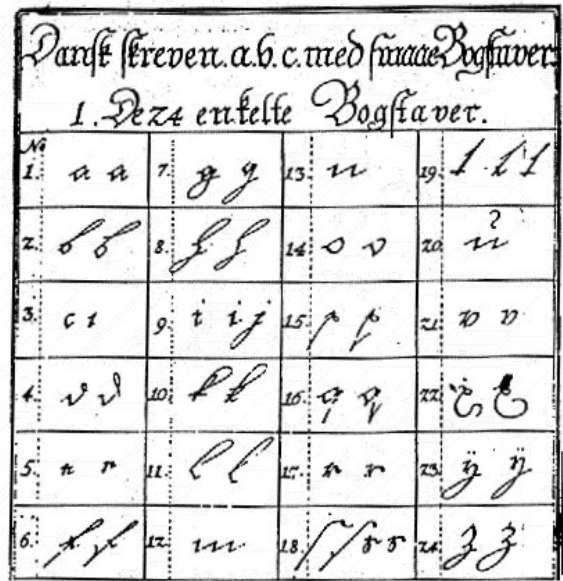 Dansk skreven.a.b.c.med smaae Bogstaver.
1. De 24 enkelte Bogstaver.
No
1. a a 7. g g 13. n 19. t t t
2. b b 8. h h 14. o o 20. u
3. c c 9. i i j 15. p p 21. v v
4. d d 10. k k 16. q q 22. x x
5. e e 11. l l 17. r r 23. ÿ ÿ
6. f f 12. m 18. ſ ſ s s 24. z z